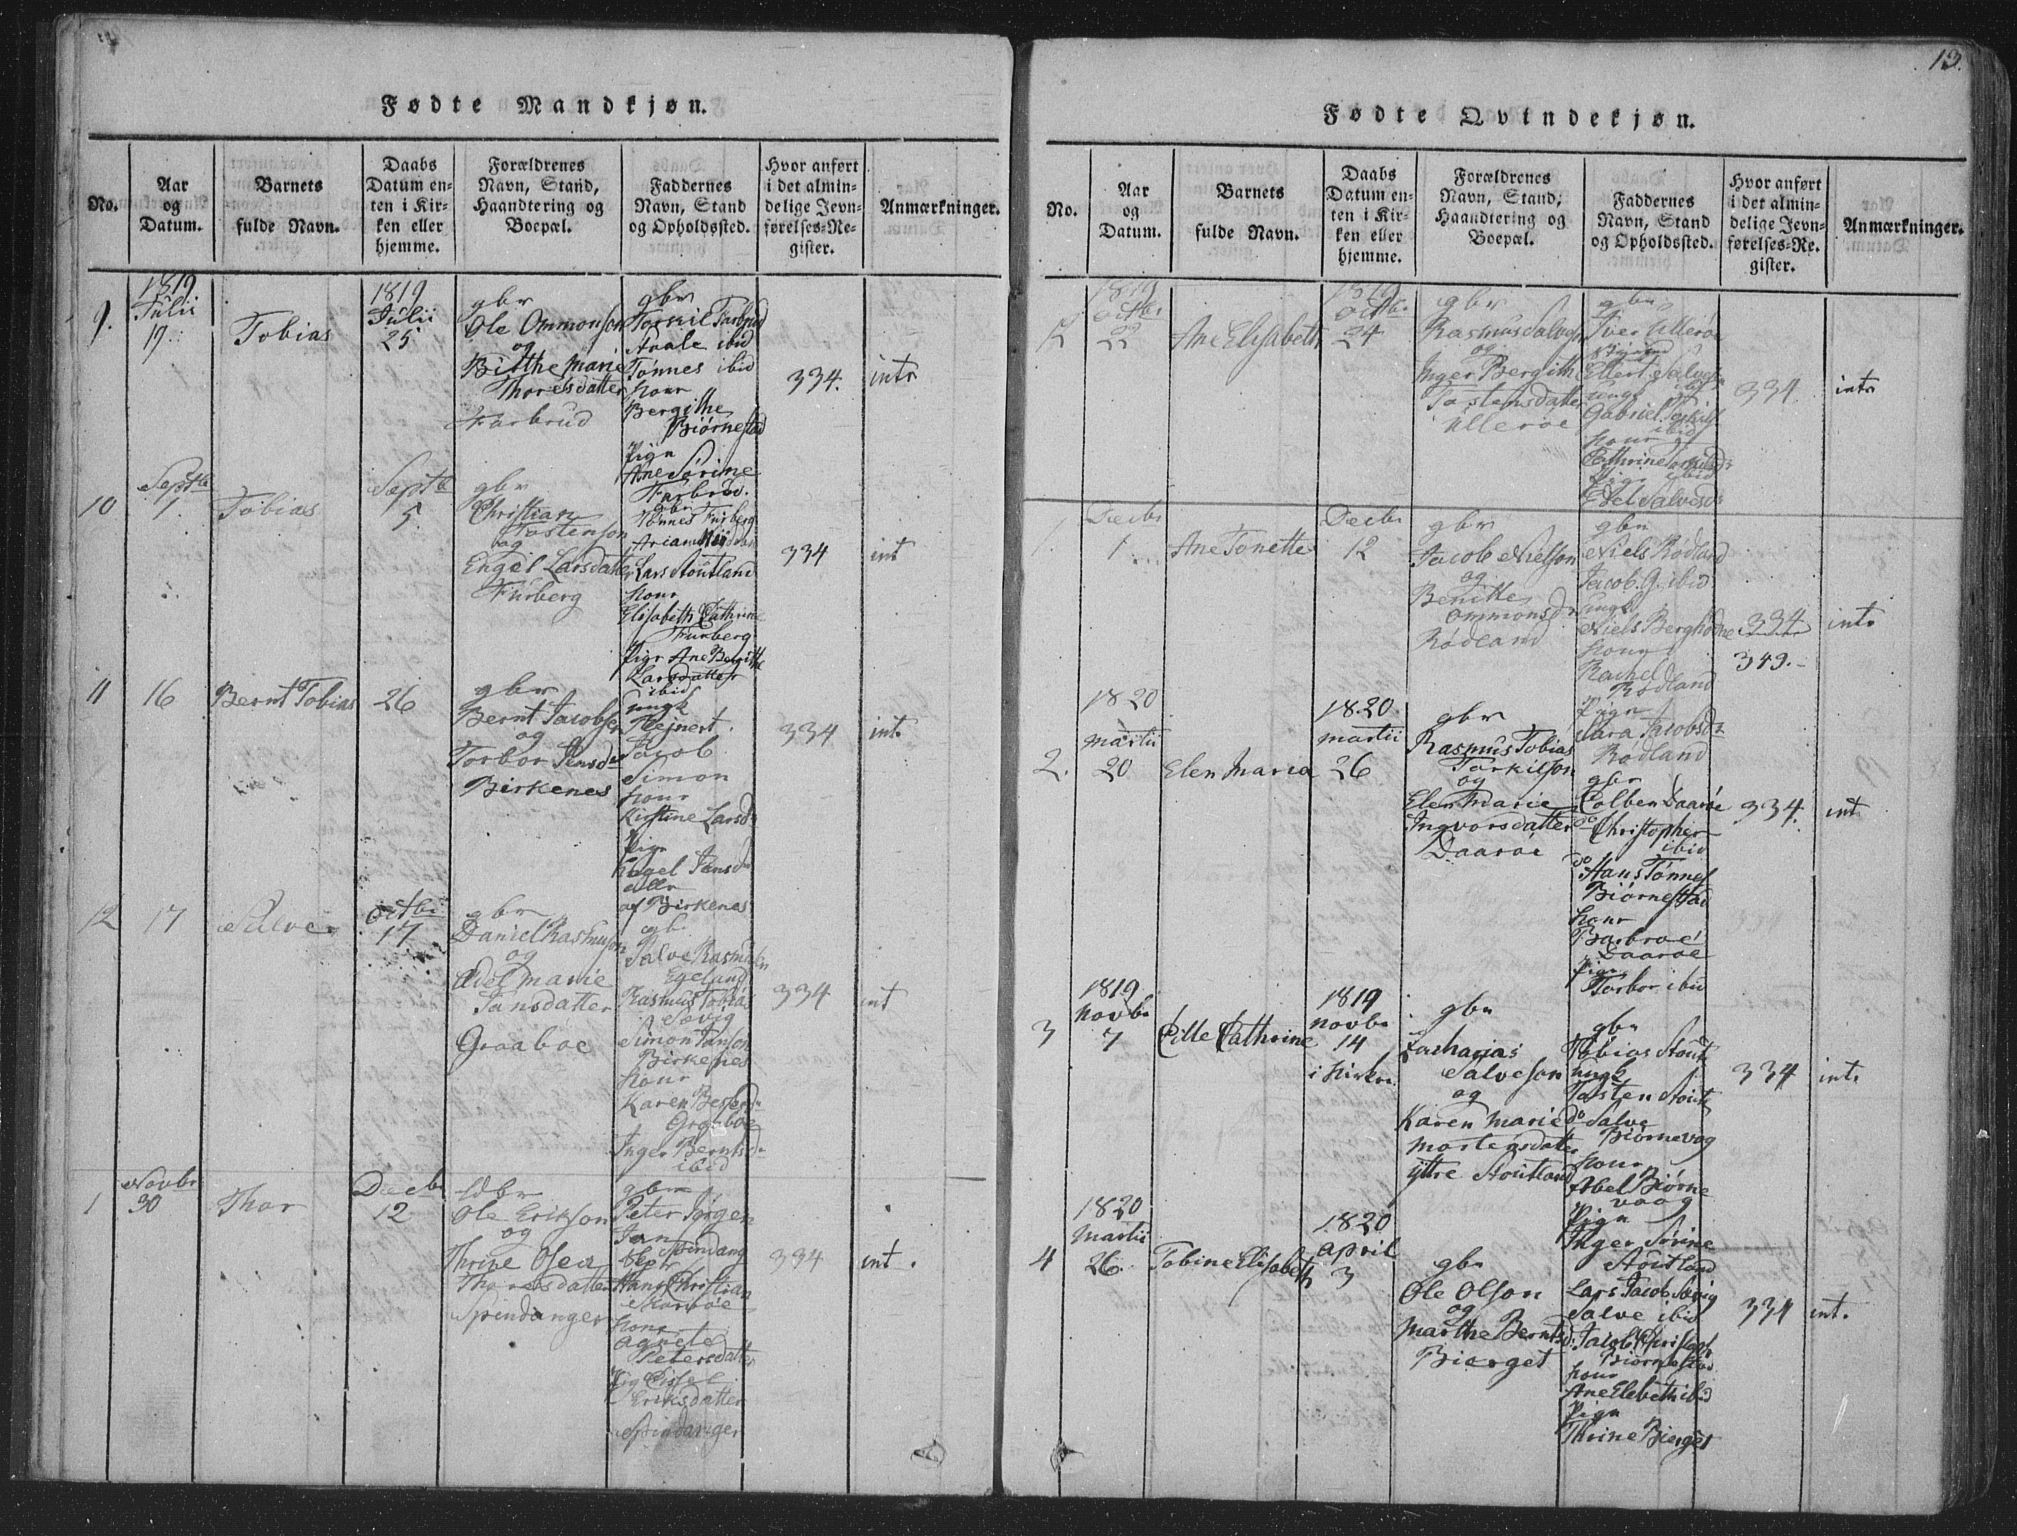 13.
Fødte Mandkjøn.
No.
Aar
og
Datum.
Barnets
fulde Navn.
Daabs
Datum en-
ten i Kir-
ken eller
hjemme.
Forældrenes
Navn, Stand,
Haandtering og
Boepæl.
Faddernes
Navn, Stand
og Opholdssted.
Hvor anført
i det almin-
delige Jevn-
førelses-Re-
gister.
Anmærkninger.
9.
1819
Julii
19.
Tobias
1819
Julii
25
gbr
Ole Ommonson
og
Birthe Marie
Thoresdatter
Farbrud
gbr
Torkil Farbrud
Aaale ibid
Tønnes ibid
Konr
Bergithe
Biørnestad
Pign
Ane Sørine
Farbrud.
334.
intr
10
Septbr
1
Tobias
Septb
5
gbr
Christian
Tostenson
og
Engel Larsdatter
Furberg
gbr
Tønnes Furberg
Lars Stoutland
Konr
Elisabeth Cathrine
Furberg
Pigr Ane Bergitthe
Larsdatter
ibid
334
int
11
16
Bernt Tobias
26
gbr
Bernt Jacobsen
og
Torbor Jensdr
Birkenes
ungk
Rejnert.
Jacob
Simon
Konr
Kirstine Larsd
Pign
Engel Jensdr
alle
af Birkenes
334
int.
12
17
Salve
Octbr
17
gbr
Daniel Rasmuson
og
Edel Marie
Jansdatter
Graaboe
gb.
Salve Rasmusen
Egeland
Rasmus Tobias
Søvig
Simon Janson
Birkenes
Konr
Karen Besserdr
Graaboe
Inger Berntsdr
ibid
334
int
1
Novbr
30
Thor
Decbr
12
gbr
Ole Erikson
og
Thrine Olea
Thoresdatter
Spendanger
gbr
Peter Jørgen
Jan
Spindang
Hans Christian
Skarvøe
Konr
Agnete
Petersdatter
Pig Sissel
Eriksdatter
Spindanger
334
int.
Fødte Qvindekjøn.
No.
Aar
og
Datum.
Barnets
fulde Navn.
Daabs
Datum en-
ten i Kir-
ken eller
hjemme.
Forældrenes
Navn, Stand,
Haandtering og
Boepæl.
Faddernes
Navn, Stand
og Opholdssted.
Hvor anført
i det almin-
delige Jevn-
førelses-Re-
gister.
Anmærkninger.
12
1819
Octbr
22
Ane Elisabeth
1819
Octbr
24
gbr
Rasmus Salvesn
og
Inger Bergith
Tostensdatter
Ullerøe
gbr
Iver Ullerøe
Ellert Salvesn
ungk ibid
Gabriel Torkils
ibid
Konr
Cathrine Torkilsdr
Pign ibid
Edel Salvesdr
334
intr
1.
Decbr
1
Ane Tonette
Decbr
12
gbr
Jacob Nielson
og
Benitte
Ommonsdr
Rødland
gbr
Niels Rødland
Jacob G. ibid
ungk
Niels Berghofne
Konr
Rachel
Rødland
Pign
Sara Jacobsdr
Rødland
334
349.
intr
2.
1820
Martii
20
Elen Maria
1820.
Martii
26
gbr
Rasmus Tobias
Torkilson
og
Elen Marie
Ingvorsdatter
Daarøe
gbr
Colben Daarøe
do Christopher
ibid
do Hans Tønnes
Biørnestad
Konr
Barbroe
Daarøe
Pign
Torbor ibid
334.
int.
3
1819
Novbr
7
Cille Cathrine
1819
Novbr
14
i Kirken
gbr
Zacharias
Salveson
og
Karen Marie
Mortensdatter
Yttre Stoutland
gbr
Tobias Stoutl
ungk
Tosten Stoutl
do Salve
Biørnevog
Konr
Abel Biørne
vaag
Pign
Inger Sørine
Stoutland
334
int.
4
1820
Martii
26.
Tobine Elisabeth
1820
April
3
gbr
Ole Olson
og
Marthe Berntsd:
Bierget
Lars Jacob Søvig
Salve ibid
Jacob Christoph
Biørnestad
Konr
Ane Elsbeth ibid
Pign
Thrine Bierget
334
int.